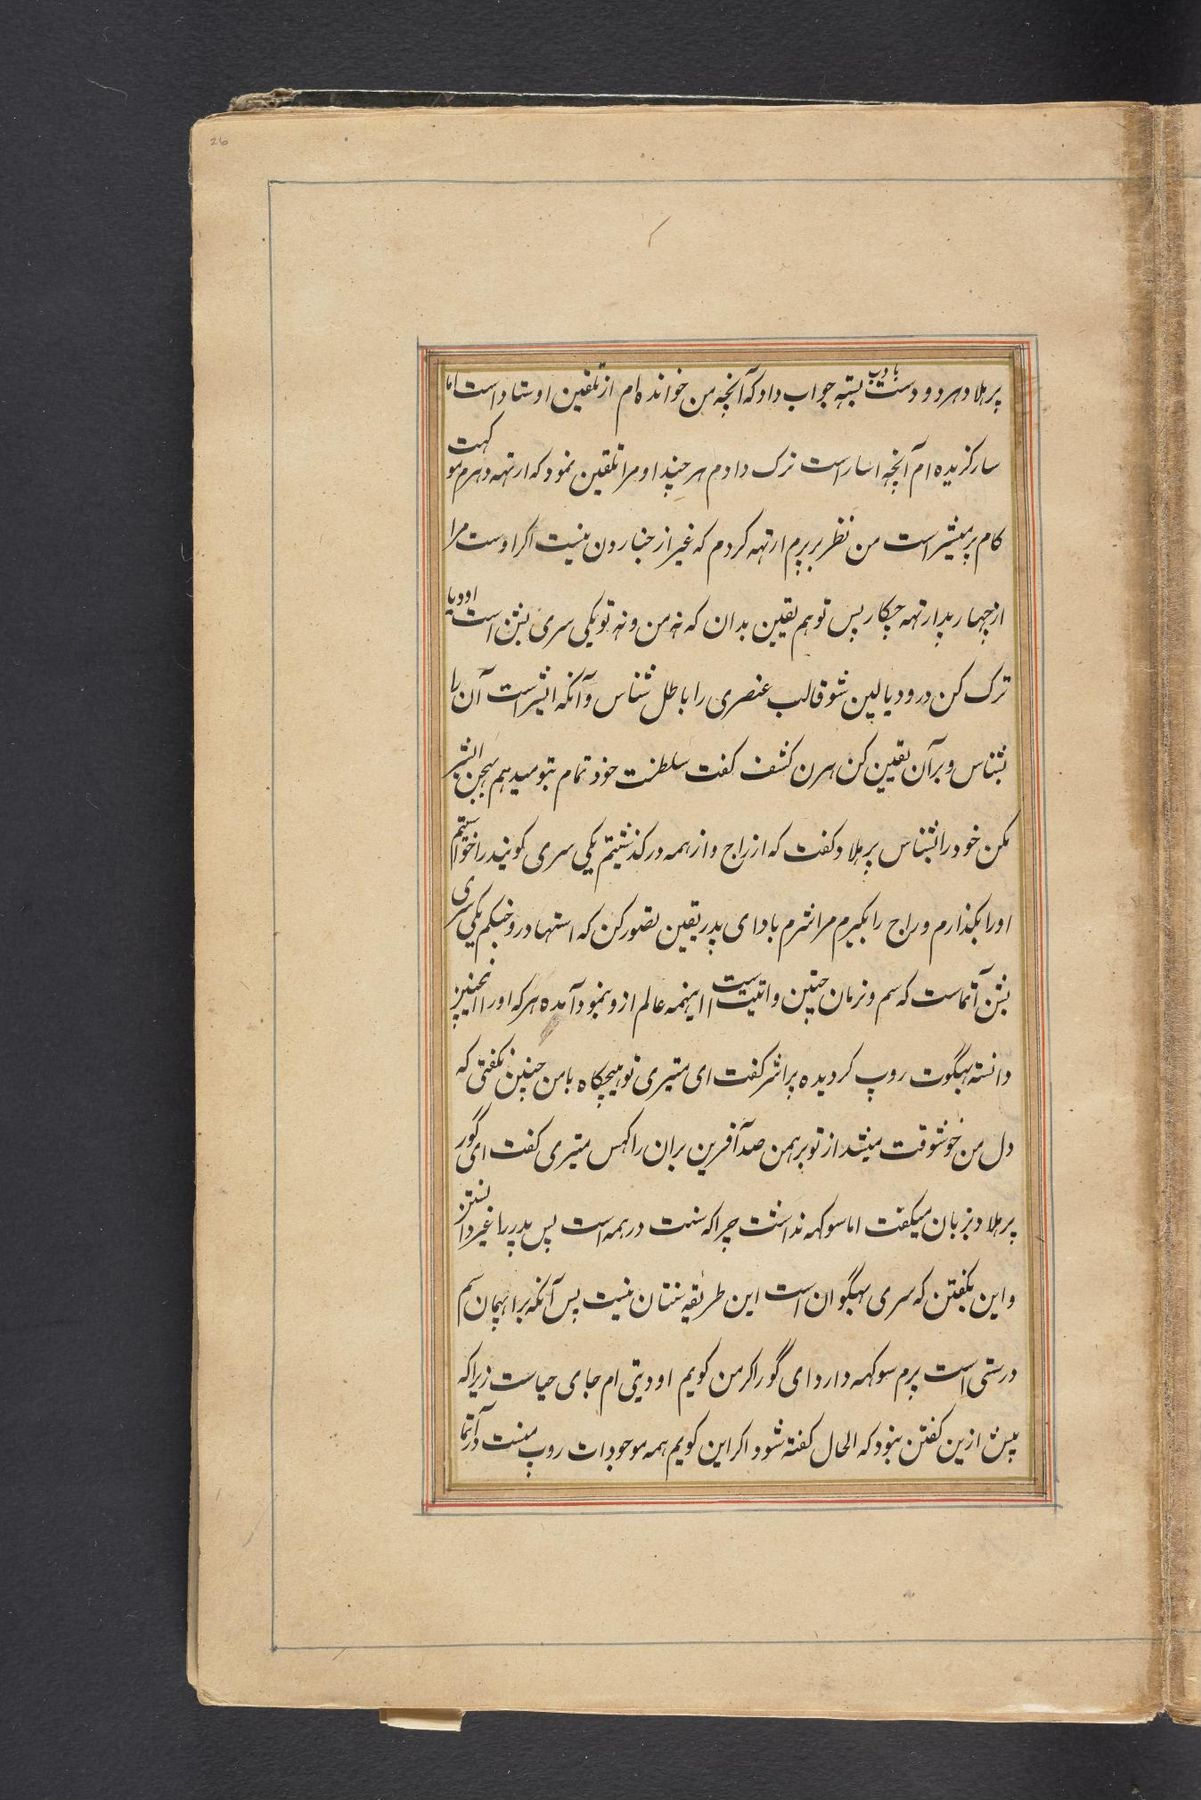 26
پرهلاد هر دو دست بادب بسته جواب داد که آنچه من خوانده ام از تلقین اوستاد است اما
سار کزیده ام آنچه اسار است ترک دادم هر چند او مرا تلقین نمود که ارتهه دهرم موکهت
کام پرمیشر است من نظر بر پرم ارتهه کردم که غیر از جنارون نیست اکر اوست مرا
از چهار پدارتهه چکار پس تو هم یقین بدان که نه من و نه تو یکی سری بشن است اودیا
ترک کن در ودیا لین شو قالب عنصری را باطل شناس و آنکه ایشر است آن را
بشناس و بر آن یقین کن هرن کشف کفت سلطنت خود تمام بتو میدهم بهجن ایشر
مکن خود را بشناس پرهلاد کفت که از راج و از همه در کذشتیم یکی سری کوبند را خواستیم
او را بکذارم و راج را بکیرم مرا شرم باد ای پدر یقین تصور کن که استها در و خبکم یکی سری
بشن آتماست که سم و نرمان چتین و اتیت است اینهمه عالم ازو بنمود آمده هر که او را اینچنین
دانسته بهگوت روپ کردیده پراشر کفت ای متیری تو هیچکاه با من چنین نکفتی که
دل من خوشوقت میشد از تو برهمن صد آفرین بران راکهس متیری کفت ای گور
پرهلاد بزبان میکفت اما سوکهه نداشت چرا که سنت در همه است پس پدر را غیر دانستن
و این بکفتن که سری بهگوان است این طریقه سنتان نیست پس آنکه براهمان سم
درستی است پرم سوکهه دارد ای گور اکر من کویم اودیتی ام جای حیاست زیرا که
پیش ازین کفتن نبود که الحال کفته شود اکر این کویم همه موجودات روپ منست در آتما